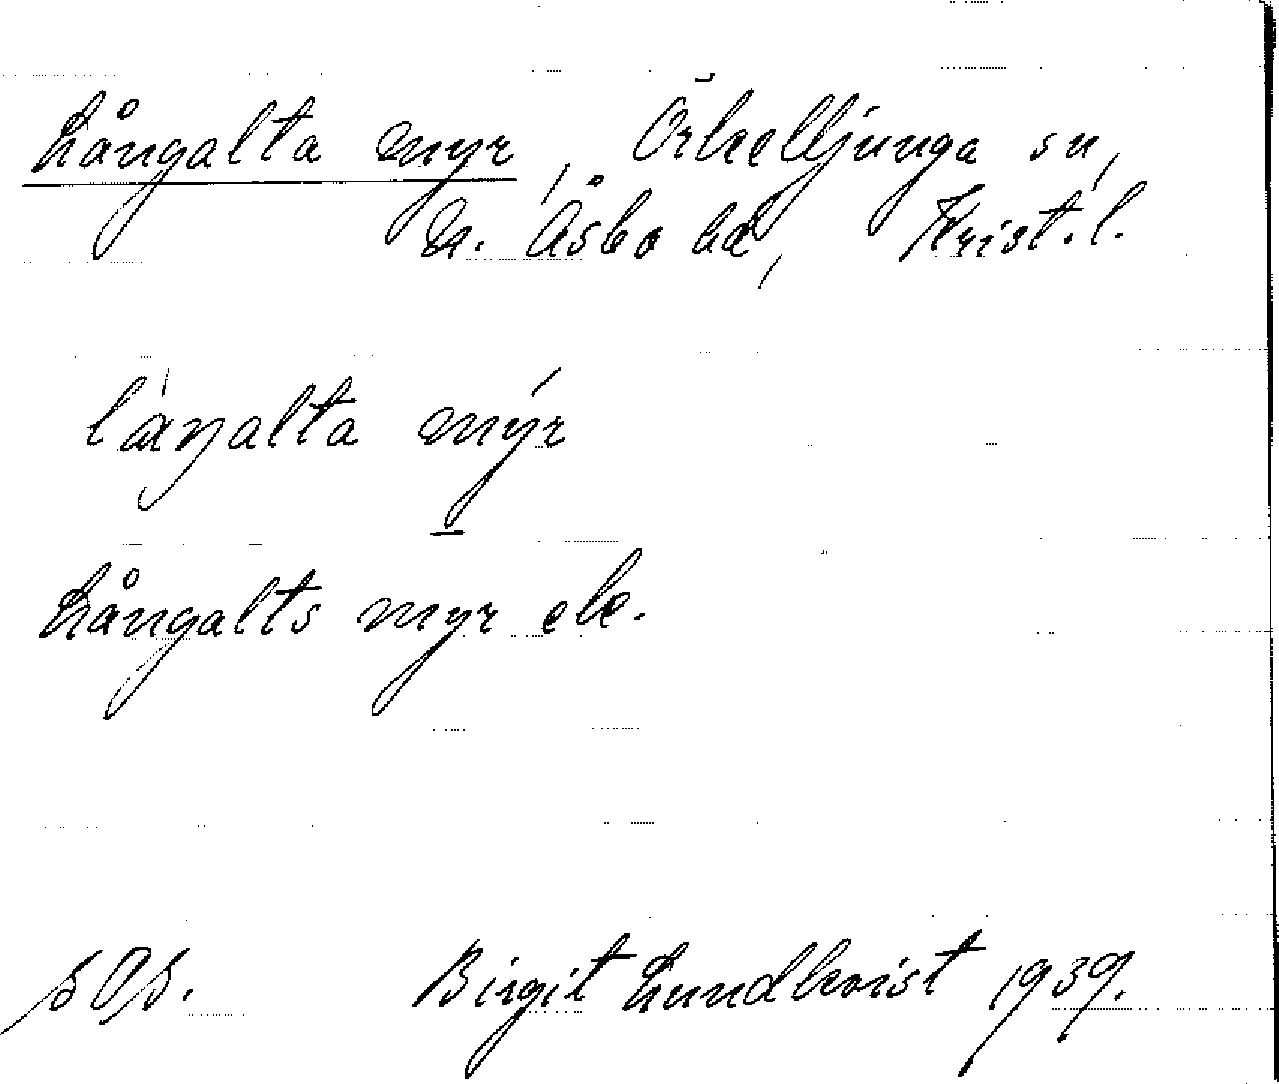 Långalta myr, Örkelljunga sn,
N. Åsbo hd, Krist.l.
lángalta mýr
Långalts myr ek.
Birgit Lundkvist 1939.